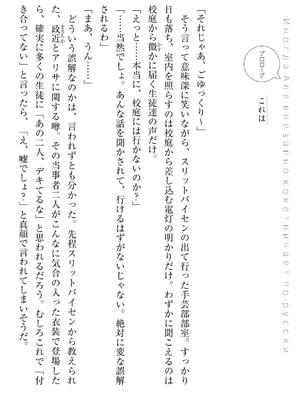 Иногда Аля внезапно кокетничает по-русски
プロローグ
これは
「それじゃあ、ごゆっくり〜」
そう言って意味深に笑いながら、スリットパイセンの出て行った手芸部部室。すっかり
日も落ち、室内を照らすのは校庭から差し込む電灯の明かりだけ。わずかに聞こえるのは
校庭から微かに届く生徒達の声だけ。
「えっと……本当に、校庭には行かないのか?」
「……当然でしょ。あんな話を聞かされて、行けるはずがないじゃない。絶対に変な誤解
されるわ」
「まあ、うん……」
どういう誤解なのかは、言われずとも分かった。先程スリットパイセンから教えられ
た、政近とアリサに関する噂。その当事者二人がこんなに気合の入った衣装で登場した
ら、確実に多くの生徒に「あの二人、デキてるな」と思われるだろう。むしろこれで「付
き合ってない」と言ったら、「え、嘘でしょ?」と真顔で言われてしまいそうだ。